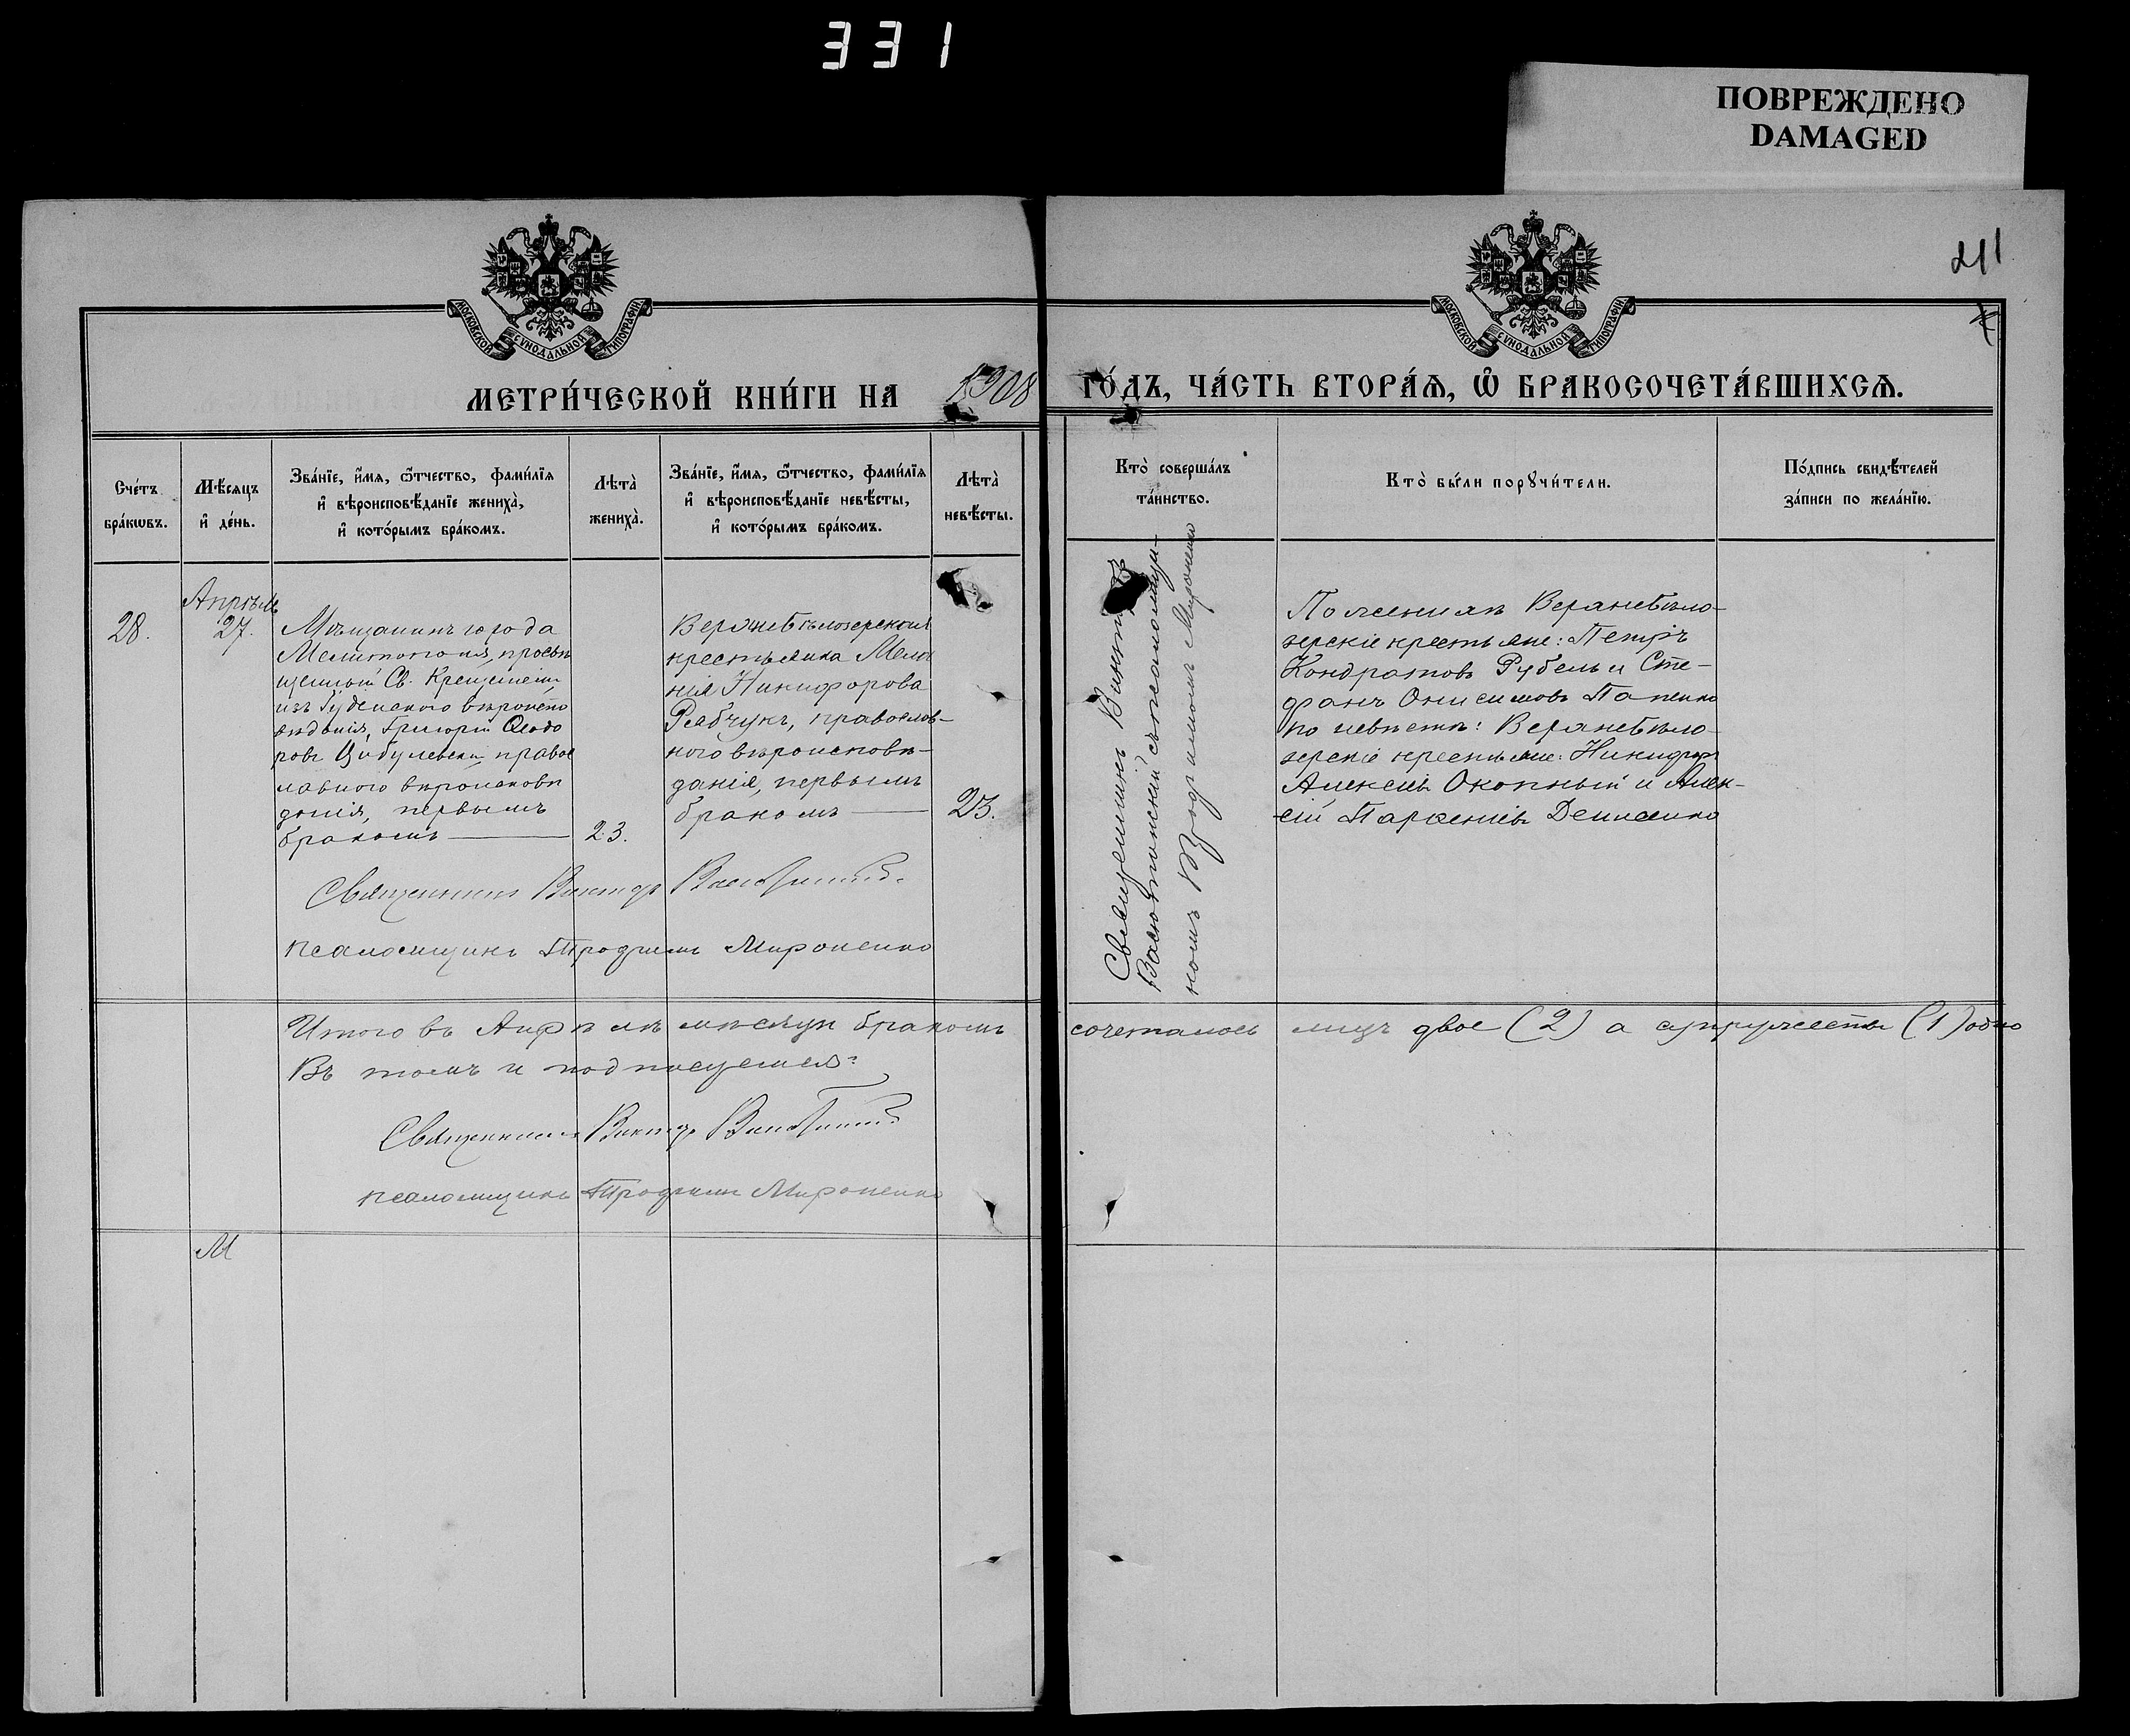 331
ПОВРЕЖДЕНО
DAMAGED
211
МОСКОВСКОЙ СѴНОДАЛЬНОЙ ТИПОГРАФІИ
МОСКОВСКОЙ СѴНОДАЛЬНОЙ ТИПОГРАФІИ
МЕТРИ́ЧЕСКОЙ КНИ́ГИ НА 1908 ГО́ДЪ, ЧА́СТЬ ВТОРА́Ѧ, Ѽ БРАКОСОЧЕТА́ВШИХСѦ.
Сче́тъ
бра́кѡвъ.
Мѣ́сяцъ
и҆ де́нь.
Зва́нїе, и҆́мя, ѻ҆́тчество, фами́лїя
и҆ вѣроисповѣ́данїе жениха̀,
и҆ кото́рымъ бра́комъ.
Лѣта̀
жениха̀.
Зва́нїе, и҆́мя, ѻ҆́тчество, фами́лїя
и҆ вѣроисповѣ́данїе невѣ́сты,
и҆ кото́рымъ бра́комъ.
Лѣта̀
невѣ́сты.
Кто̀ соверша́лъ
та́инство.
Кто̀ бы́ли порꙋчи́тели.
По́дпись свидѣ́телей
за́писи по жела́нїю.
28.
Апрѣль
27.
Мѣщанинъ города
Мелитополя, просвѣ
щенный Св. Крещеніемъ
изъ Іудейскаго вѣроиспо
вѣданія, Григорій Ѳеодо
ровъ Цибулевскій, правос
лавного вѣроисповѣ
данія, первымъ
бракомъ
23.
Верхнебѣлозерская
крестьянка Мела
нія Никифорова
Рябчукъ, православ-
ного вѣроисповѣ-
данія, первымъ
бракомъ
23.
Священникъ Викторъ
псаломщи-
комъ Трофимомъ Мироненко
По женихѣ Верхнебѣло-
зерскіе крестьяне: Петръ
Кондратовъ Рубель и Сте-
фанъ Онисимовъ Папенко
по невѣстѣ: Верхнебѣло-
зерскіе крестьяне: Никифоръ
Алексѣевъ Окопный и Алек-
сій Пароеніевъ Денисенко
Священникъ Викторъ
псаломщикъ Трофимъ Мироненко
Итого въ Апрѣлѣ мѣсяцѣ бракомъ сочеталось лицъ двое (2) а супружество (1) одно
Въ томъ и подписуемся:
Священникъ Викторъ
псаломщикъ Трофимъ Мироненко
М